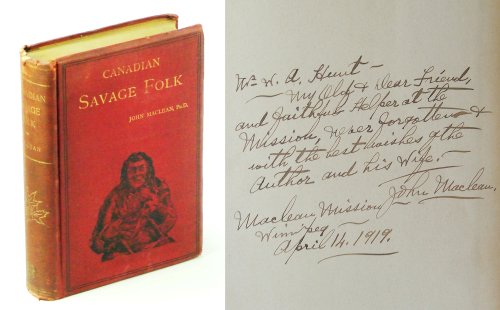 CANADIAN
SAVAGE FOLK
JOHN MACLEAN, PH.D.
Mr. W. A. Hunt —
My Old & Dear Friend,
and faithful Helper at the
Mission, never forgotten &
with the best wishes of the
Author and his Wife. —
John Maclean.
Maclean Mission
Winnipeg
April 14. 1919.